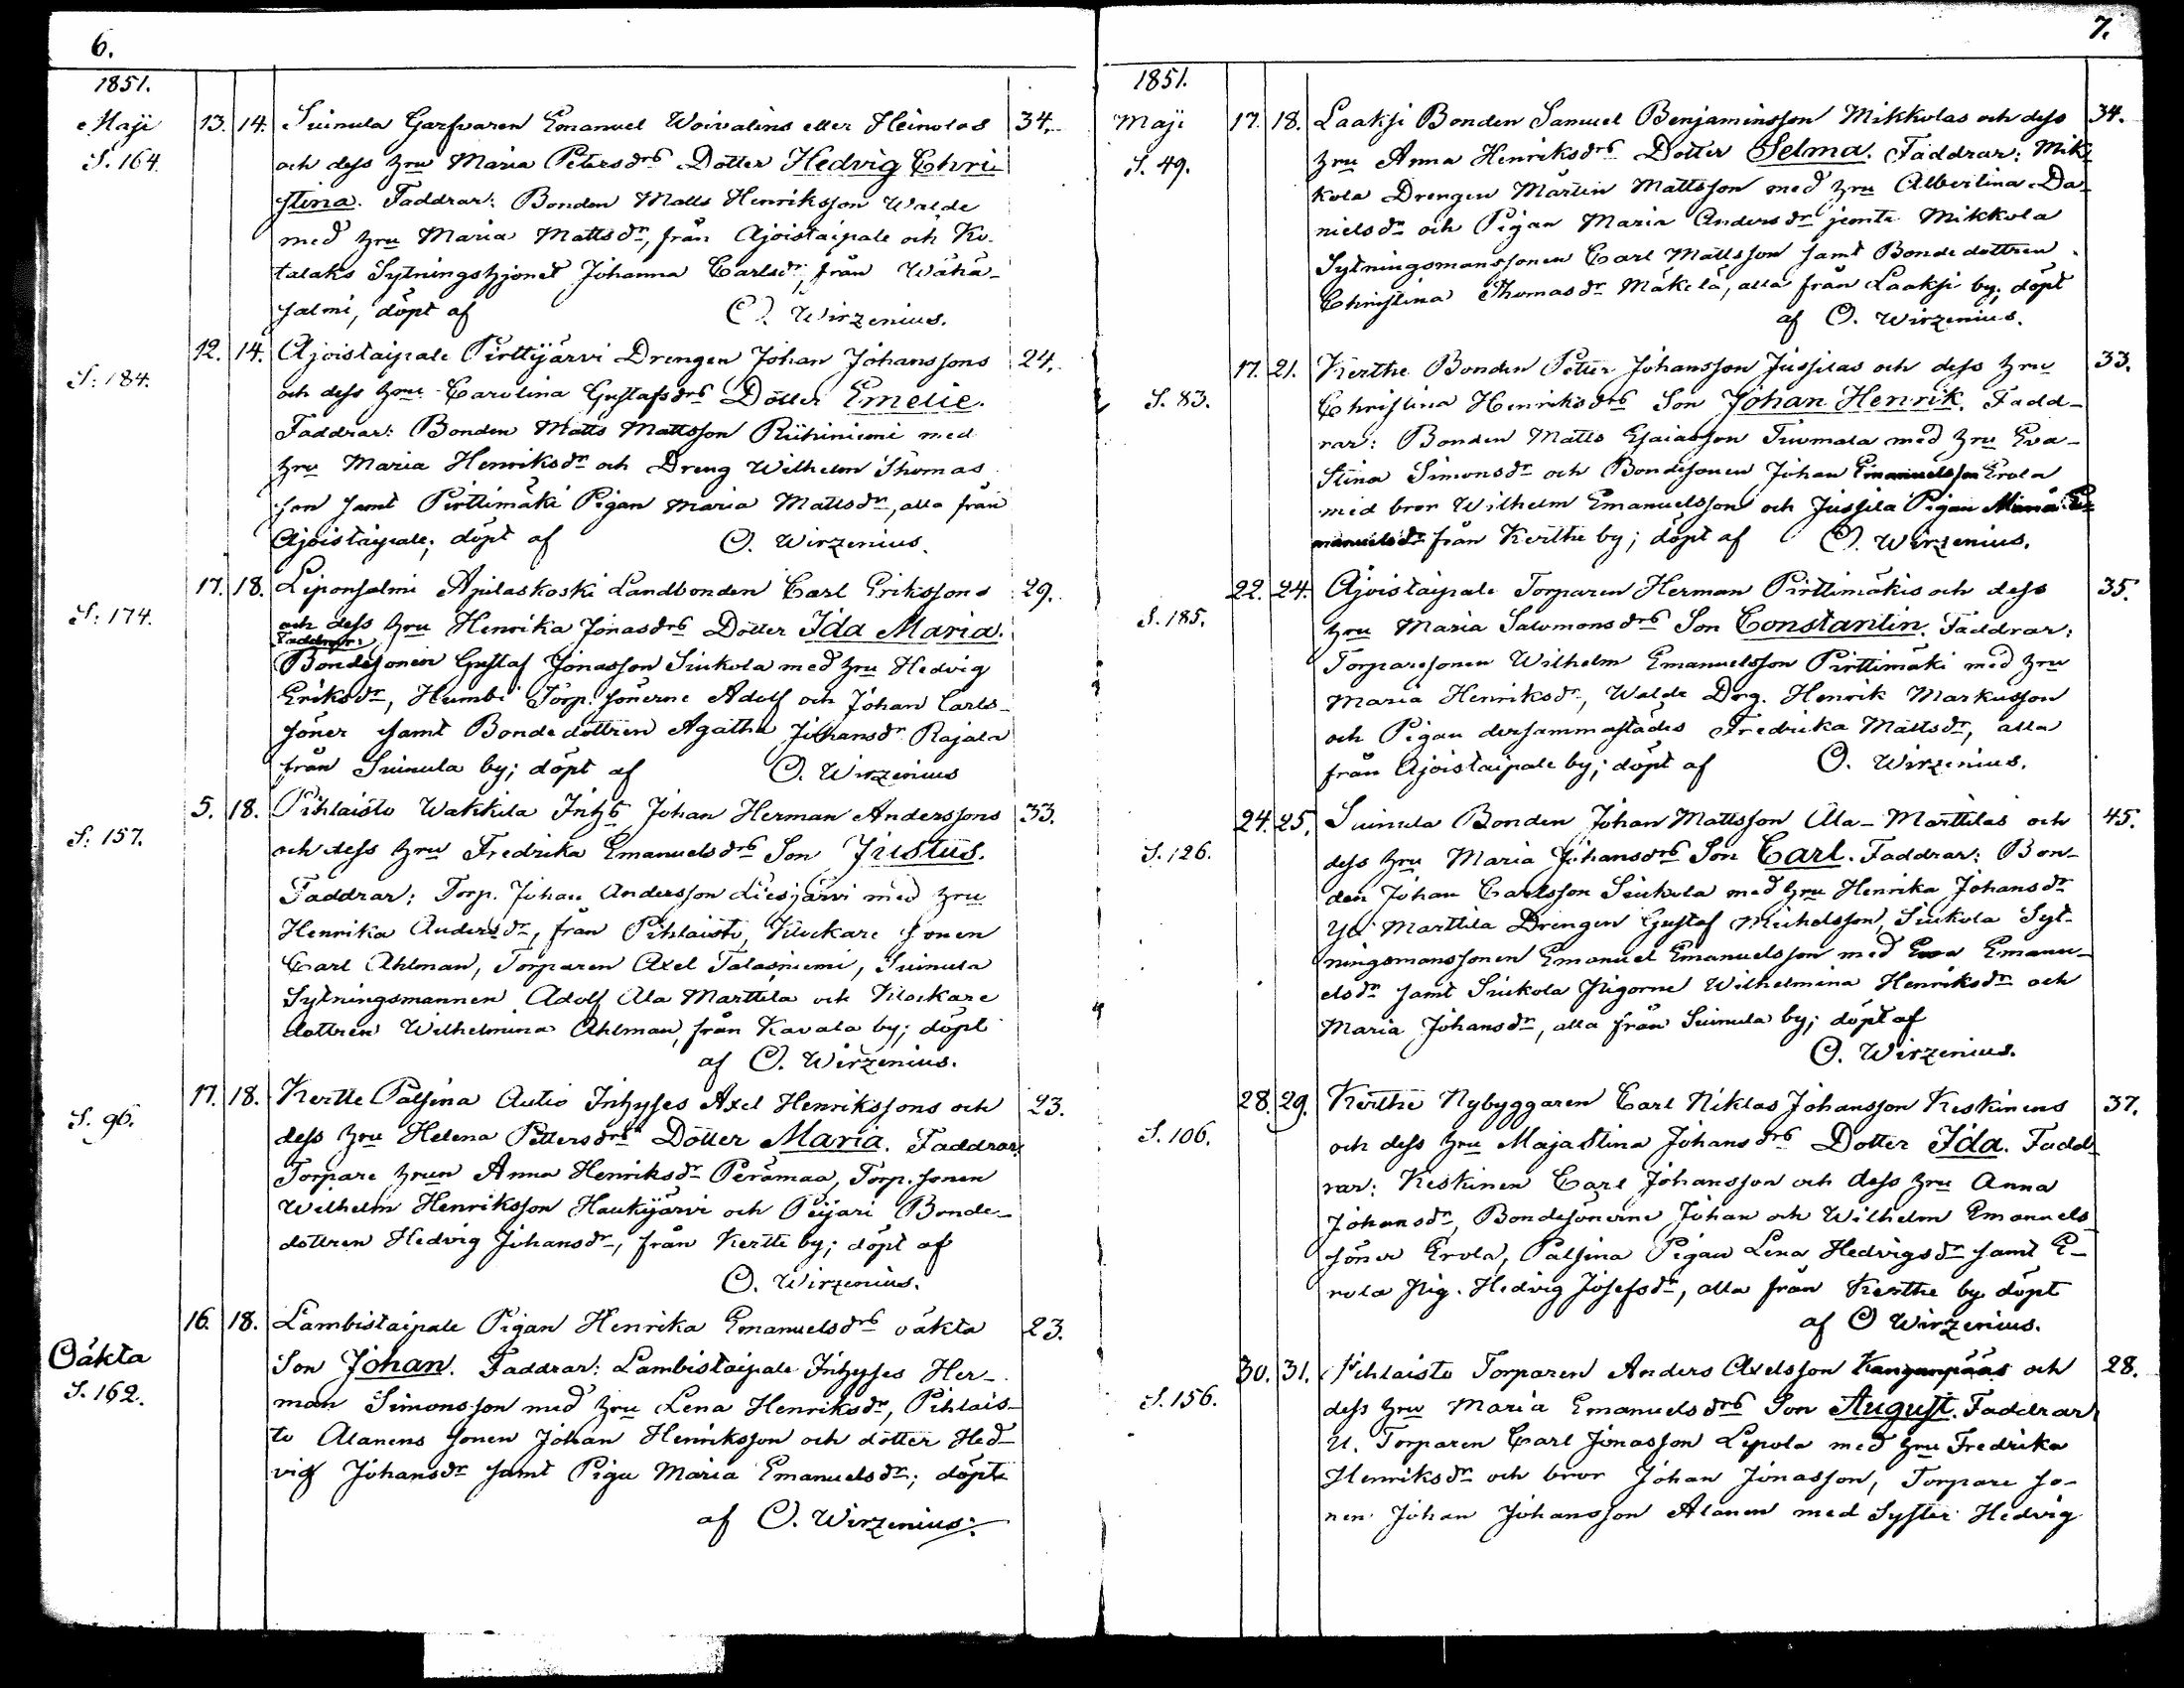 6.
1851.
Maji 13. 14. Suinula Garfvaren Emanuel Woivalins eller Heinolas 34.
S. 164. och dess hru Maria Petersdrs Dotter Hedvig Chri
stina. Faddrar: Bonden Matts Henriksson Walde
med hru Maria Mattsdr, från Ajoistaipale och Ko-
talaks Sytningshjonet Johanna Carlsdr, från Wähä-
salmi, döpt af O. Wirzenius.
12. 14. Ajoistaipale Pirttijärvi Drengen Johan Johanssons 24.
S. 184. och dess hru Carolina Gustafsdrs Dotter Emelie.
Faddrar: Bonden Matts Mattsson Riihiniemi med
hru Maria Henriksdr och Dreng Wilhelm Thomas
son samt Pirttimäki Pigan Maria Mattsdr, alla från
Ajoistaipale; döpt af O. Wirzenius.
17. 18. Liponsalmi Apilaskoski Landbonden Carl Erikssons 29.
S. 174. och dess hru Henrika Jonasdrs Dotter Ida Maria.
Faddrar:
Bondesonen Gustaf Jonasson Siukola med hru Hedvig
Eriksdr, Humbi Torp. sönerne Adolf och Johan Carls-
söner samt Bondedottren Agatha Johansdr Rajala
från Suinula by; döpt af O. Wirzenius
5. 18. Pihlaisto Wakkila Inhs Johan Herman Anderssons 33.
S. 157. och dess hru Fredrika Emanuelsdrs Son Justus.
Faddrar: Torp. Johan Andersson Liesjärvi med hru
Henrika Andersdr, från Pihlaisto, Klockare sonen
Carl Ahlman, Torparen Axel Talasniemi, Suinula
Sytningsmannen Adolf Ala Marttila och Klockare
dottren Wilhelmina Ahlman, från Kavala by; döpt
af O. Wirzenius.
17. 18. Kertte Palsina Autio Inhyses Axel Henrikssons och 23.
S. 96. dess hru Helena Pettersdrs Dotter Maria. Faddrar:
Torpare hrun Anna Henriksdr Perämaa, Torp. sonen
Wilhelm Henriksson Haukijärvi och Peijari Bonde-
dottren Hedvig Johansdr, från Kertte by; döpt af
O. Wirzenius.
16. 18. Lambistaipale Pigan Henrika Emanuelsdrs oäkta 23.
Oäkta Son Johan. Faddrar: Lambistaipale Inhyses Her-
S. 162. man Simonsson med hru Lena Henriksdr, Pihlais-
to Alanens sonen Johan Henriksson och dotter Hed-
vig Johansdr samt Piga Maria Emanuelsdr; döpte
af O. Wirzenius.
7.
1851.
Maji 17. 18. Laaksi Bonden Samuel Benjaminsson Mikkolas och dess 34.
S. 49. hru Anna Henriksdrs Dotter Selma. Faddrar: Mik-
kola Drengen Mårtin Mattsson med hru Albertina Da-
nielsdr och Pigan Maria Andersdr jemte Mikkola
Sytningsmanssonen Carl Mattsson samt Bondedottren
Christina Thomasdr Mäkelä, alla från Laaksi by, döpt
af O. Wirzenius.
17. 21. Kerthe Bonden Petter Johansson Jussilas och dess hru 33.
S. 83. Christina Henriksdrs Son Johan Henrik. Fadd-
rar: Bonden Matts Esaiasson Tuomala med hru Eva-
stina Simonsdr och Bondesonen Johan Emanuelsson Erola
med bror Wilhelm Emanuelsson och Jussila Pigan Maria E-
manuelsdr från Kerthe by; döpt af O. Wirzenius.
22. 24. Ajoistaipale Torparen Herman Pirttimäkis och dess 35.
S. 185. hru Maria Salomonsdrs Son Constantin. Faddrar:
Torparesonen Wilhelm Emanuelsson Pirttimäki med hru
Maria Henriksdr, Walde Drg. Henrik Markusson
och Pigan dersammastädes Fredrika Mattsdr, alla
från Ajoistaipale by; döpt af O. Wirzenius.
24. 25. Suinula Bonden Johan Mattsson Ala-Marttilas och 45.
S. 126. dess hru Maria Johansdrs Son Carl. Faddrar: Bon-
den Johan Carlsson Siukola med hru Henrika Johansdr
Yli Marttila Drengen Gustaf Michelsson, Siukola Syt-
ningsmanssonen Emanuel Emanuelsson med Eva Emanu-
elsdr samt Siukola Pigorne Wilhelmina Henriksdr och
Maria Johansdr, alla från Suinula by; döpt af
O. Wirzenius.
28. 29. Kerthe Nybyggaren Carl Niklas Johansson Keskinens 37.
S. 106. och dess hru Majastina Johansdrs Dotter Ida. Fadd-
rar: Keskinen Carl Johansson och dess hru Anna
Johansdr, Bondesönerne Johan och Wilhelm Emanuels-
söner Erola, Palsina Pigan Lena Hedvigsdr samt E-
rola Pig. Hedvig Josefsdr, alla från Kerthe by döpt
af O Wirzenius.
30. 31. Pihlaisto Torparen Anders Axelsson Kanganpääs och 28.
S. 156. dess hru Maria Emanuelsdrs Son August. Faddrar
U. Torparen Carl Jonasson Lepola med hru Fredrika
Henriksdr och bror Johan Jonasson, Torpare so-
nen Johan Johansson Alanen med Syster Hedvig